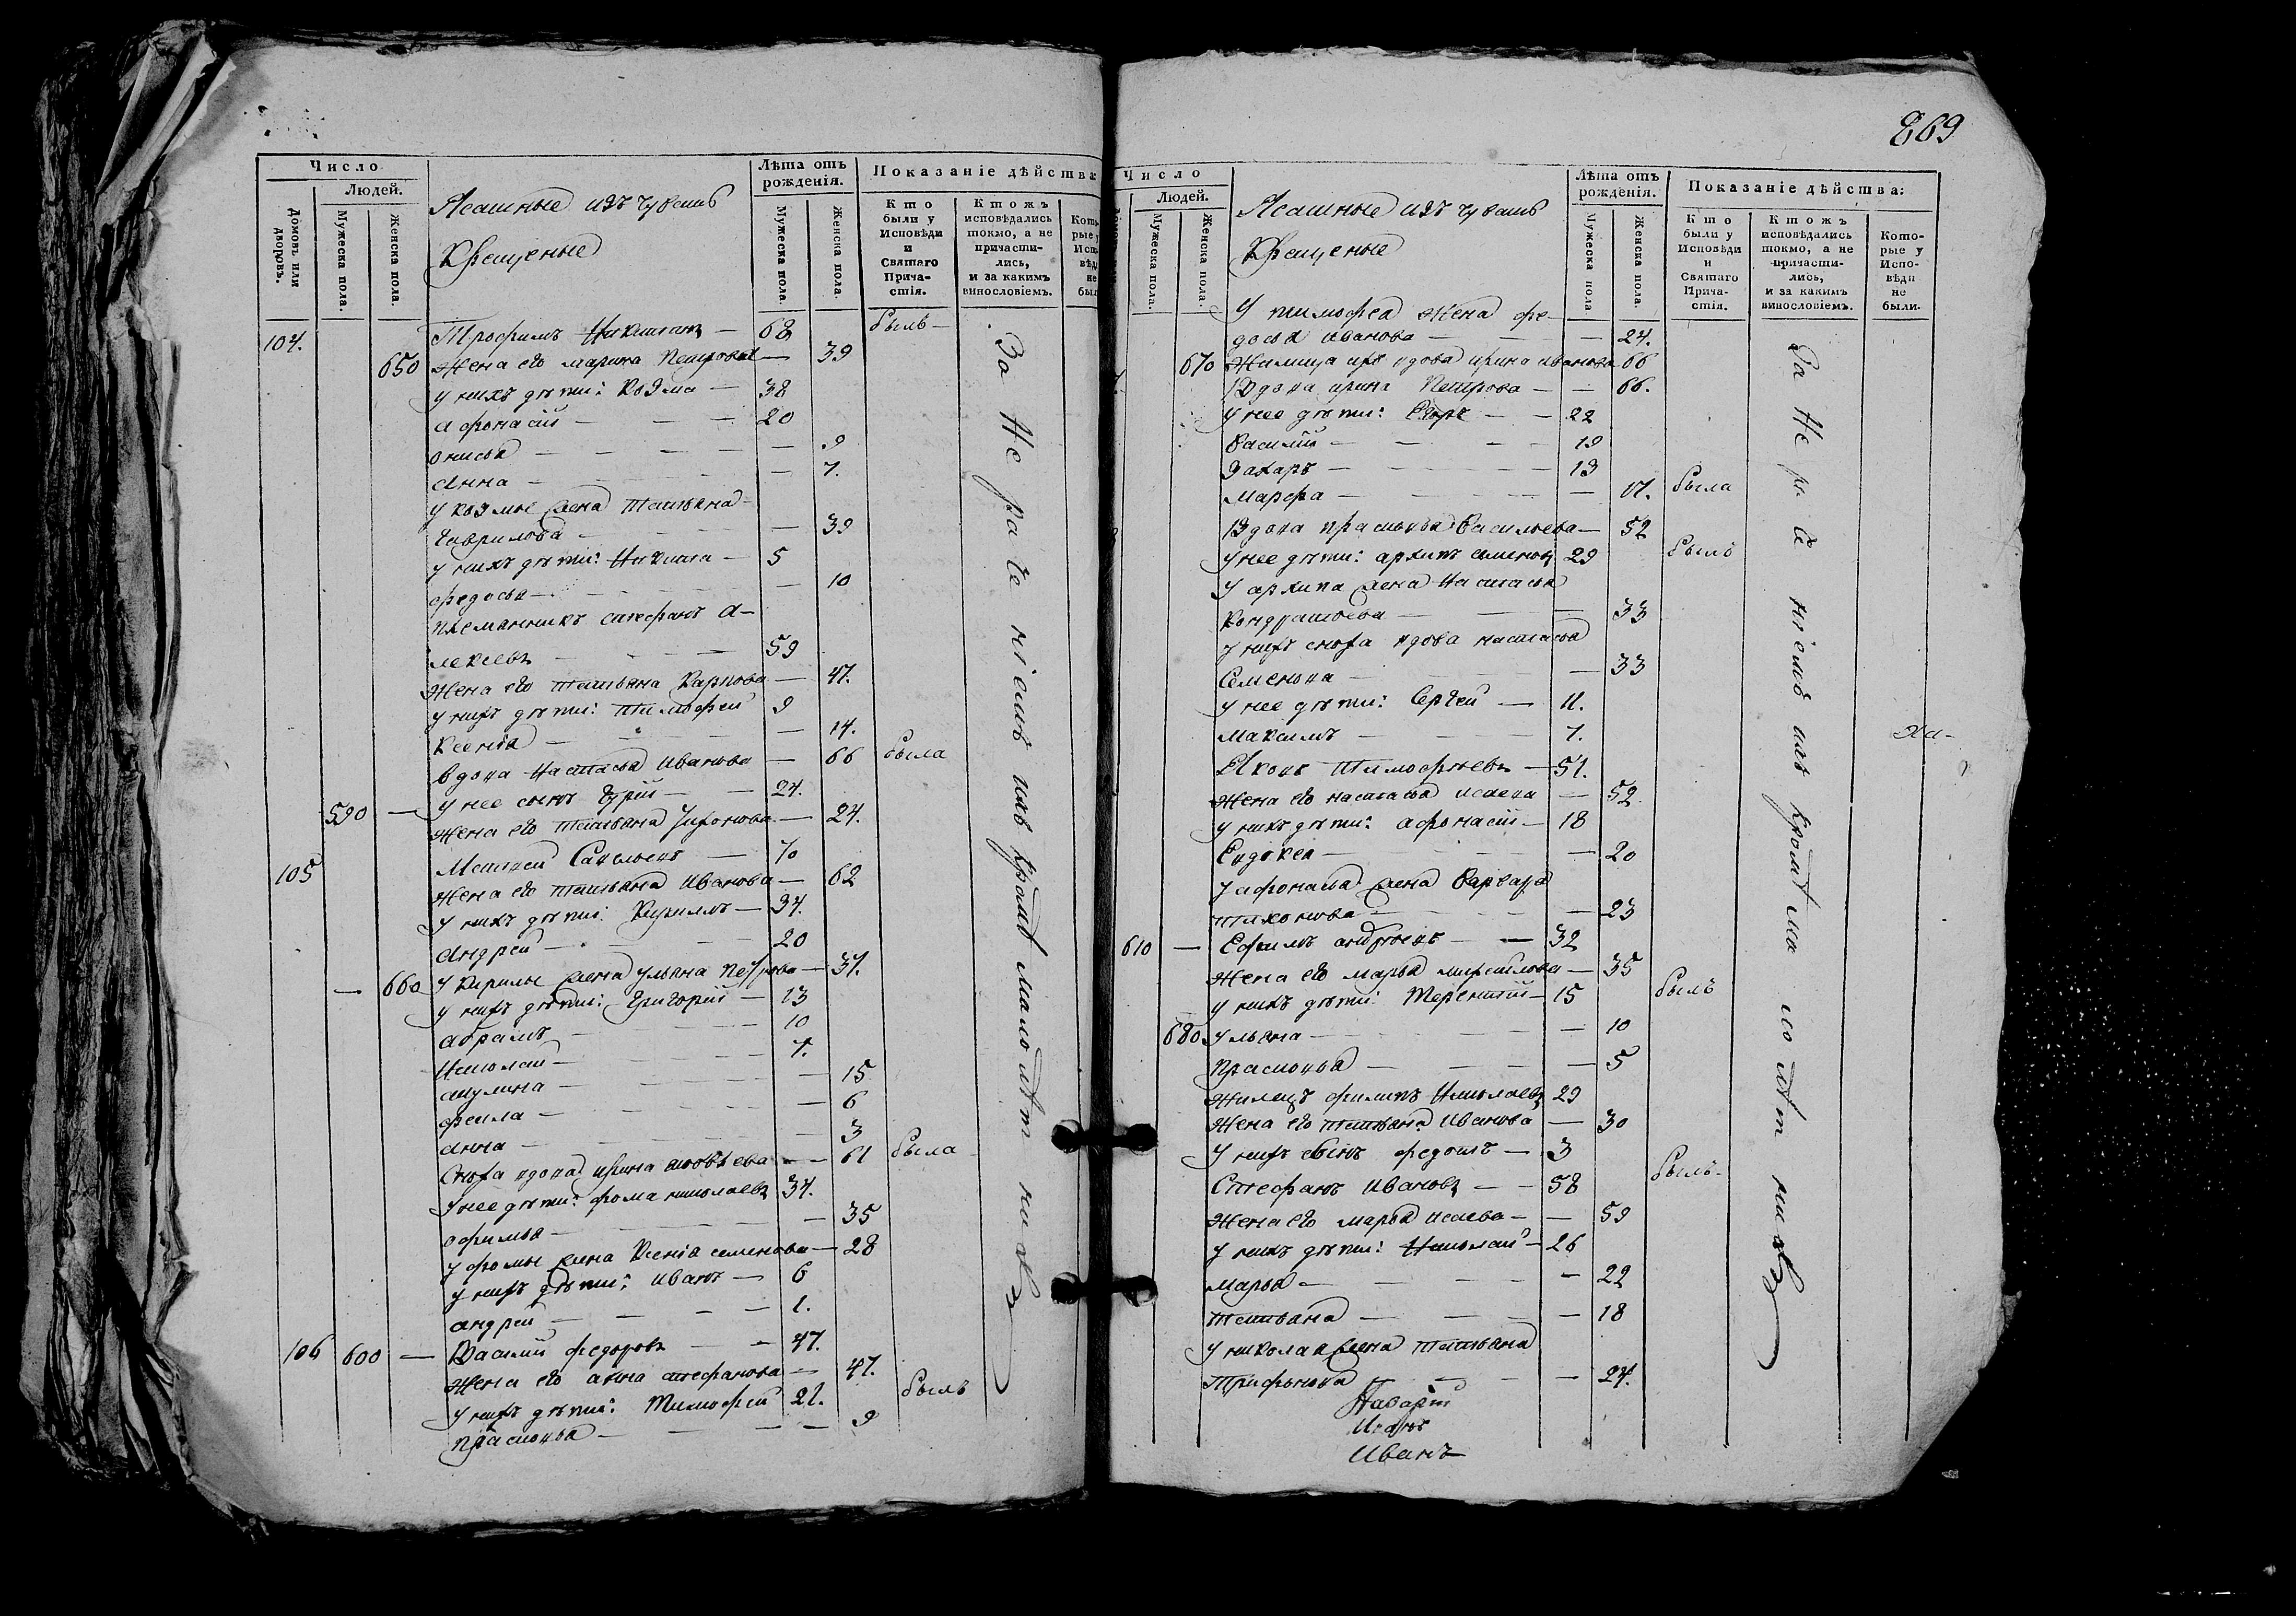 Число
Людей.
Домовъ или дворовъ.
Мужеска пола.
Женска пола.
Ясашные изъ чувашъ
Крещеные
Лѣта отъ рожденія.
Мужеска пола.
Женска пола.
Показаніе дѣйства:
Кто были у Исповѣди и Святаго Причастія.
Ктожъ исповѣдались токмо, а не причастились, и за какимъ винословіемъ.
104. Трофимъ Никитинъ — 68 былъ
650 Жена его марина Петрова — 39
у нихъ дѣти: Козма — 38
афонасій — 20
онисья — 9
Анна — 7.
у козмы жена татьяна
Гаврилова — 39
у нихъ дѣти: Никита — 5
федосья — 10
племянникъ стефанъ а-
лексѣевъ — 59
жена его татьяна Карпова — 47.
у нихъ дѣти: тимофей 9
Ксенія — 14.
вдова настасья Иванова — 66 была
590 — у нее сынъ Гурій — 24.
жена его татьяна — 24.
105 Матвей Савельевъ — 70
жена его татьяна Иванова — 62
у нихъ дѣти: Кириллъ — 34.
Андрей — 20
— 660 у Кирилы жена ульяна петрова — 37.
у нихъ дѣти: Григорий — 13
абрамъ — 10
Николай — 7.
акулина — 15
фекла — 6
анна — 3
Сноха вдова ирина — 61 была
у нее дѣти: фома николаевъ 34.
офимья — 35
у фомы жена Ксенія семенова — 28
у нихъ дѣти: иванъ — 6
андрей — 1.
106 600 — Василий федоровъ — 47.
жена его анна стефанова — 47.
у нихъ дѣти: Тимофей 21. былъ
прасковья — 9
За нераченіемъ ихъ кромѣ малолѣтнихъ
869
Число
Людей.
Мужеска пола.
Женска пола.
Ясашные изъ чувашъ
Крещеные
Лѣта отъ рожденія.
Мужеска пола
Женска пола.
Показаніе дѣйства:
Кто были у Исповѣди и Святаго Причастія.
Ктожъ исповѣдались токмо, а не причастились, и за какимъ винословіемъ.
Которые у Исповѣди не были.
У тимофея жена фе-
досья иванова — 24.
670 Жилица ихъ вдова ирина иванова 66
Вдова ирина Петрова — 66.
у нее дѣти: Егоръ — 22
Василий — 19
Захаръ — 13
Марфа — 17. была
Вдова прасковья Васильева — 52
у нее дѣти: архипъ семеновъ 29 былъ
у архипа жена Настасья
Кондратьева — 33
у нихъ сноха вдова настасья
Семенова — 33
у нее дѣти: Сергей — 11.
Максимъ — 7.
Яковъ Тимофѣевъ — 51.
жена его настасья исаева — 52.
у нихъ дѣти: афонасій — 18
Евдокея — 20
у афонасья жена Варвара
тихонова — 23
610 — Ефимъ андрѣевъ — 32
жена его марья михайлова — 35
у нихъ дѣти: Терентій — 15 былъ
680 ульяна — 10
прасковья — 5
Жилецъ филипъ Николаевъ 29
жена его татьяна Иванова — 30
у нихъ сынъ федотъ — 3
Стефанъ Ивановъ — 58 былъ
жена его марья исаева — 59
у нихъ дѣти: Николай — 26
марья — 22
татьяна — 18
у николая жена татьяна
Трифонова — 24.
За нераченіемъ ихъ кромѣ малолѣтнихъ
Иванъ